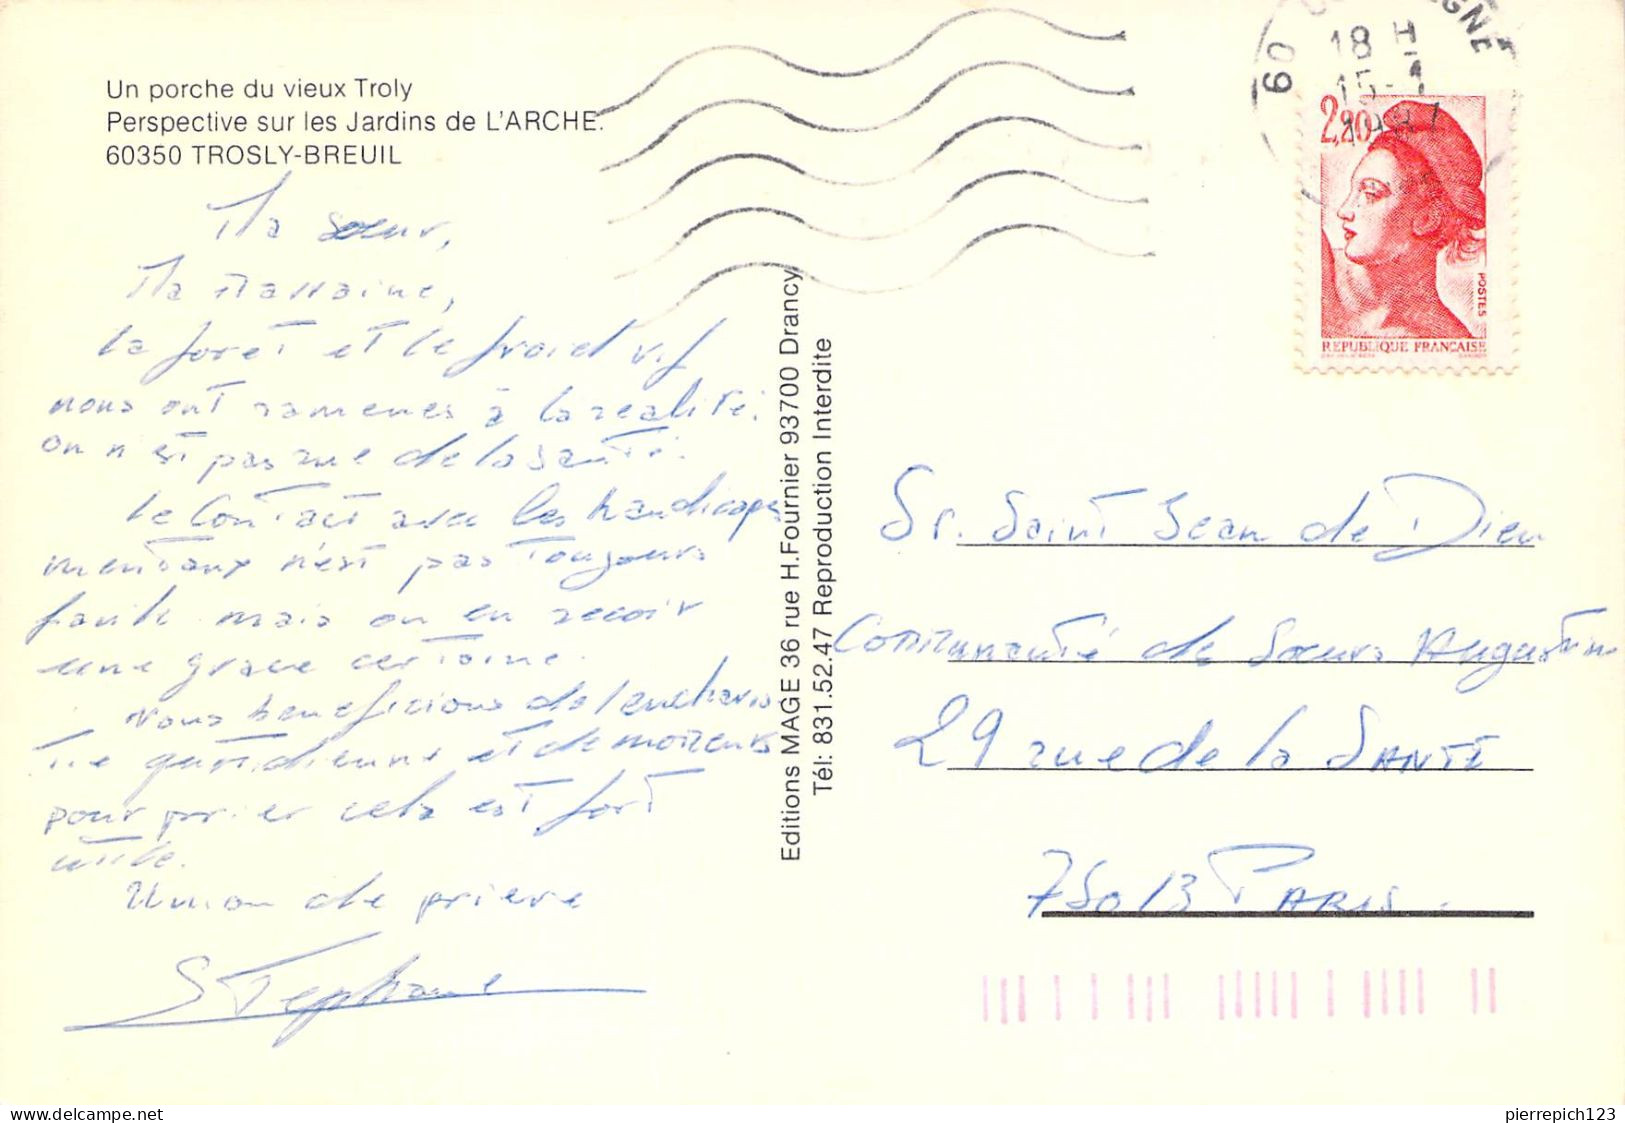 Un porche du vieux Troly
Perspective sur les Jardins de L'ARCHE.
60350 TROSLY-BREUIL
Ma sœur,
Ma Marraine,
la foret et le froid vif
nous ont ramenes à la realité.
on n'est pas rue de la santé.
Le Contact avec les handicapes
mentaux n'est pas toujours
facile mais on en recoir
une grace certaine.
Nous beneficions de l'eucharis
tie quotidienne et de moments
pour prier cela est fort
utile.
Union de priere
Stephane
Editions MAGE 36 rue H.Fournier 93700 Drancy
Tél: 831.52.47 Reproduction Interdite
60
18 H
15-1
2,20
POSTES
REPUBLIQUE FRANÇAISE
Sr. Saint Jean de Dieu
Communauté de Sœurs Augustin
29 rue de la SANTÉ
75013 PARIS.
delcampe.net
pierrepich123